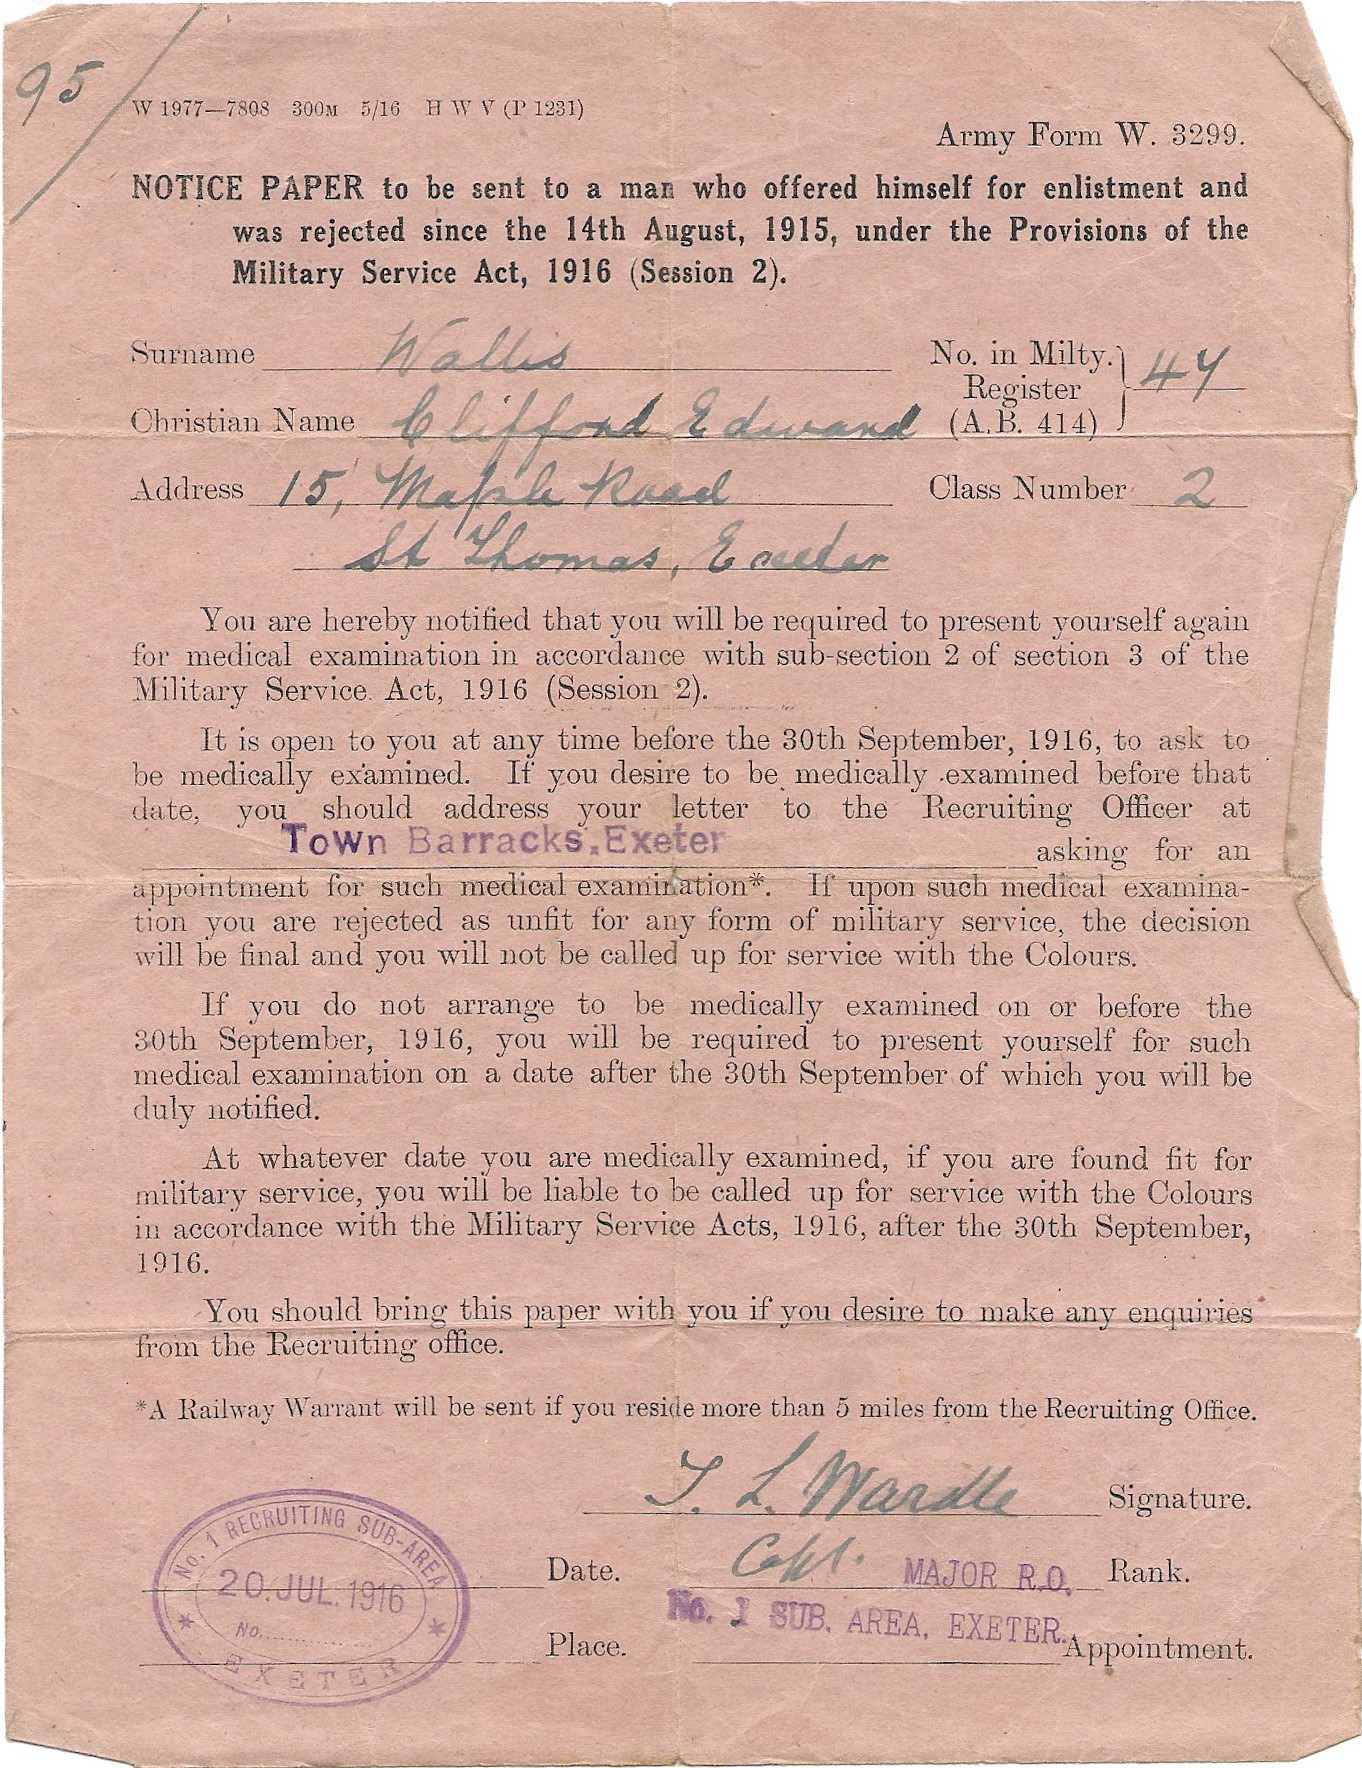 95
W 1977—7808 300M 5/16 H W V (P 1231)
Army Form W. 3299.
NOTICE PAPER to be sent to a man who offered himself for enlistment and
was rejected since the 14th August, 1915, under the Provisions of the
Military Service Act, 1916 (Session 2).
Surname Wallis
No. in Milty. Register (A.B. 414) } 44
Christian Name Clifford Edward
Address 15, Maple Road
Class Number 2
St Thomas, Exeter
You are hereby notified that you will be required to present yourself again
for medical examination in accordance with sub-section 2 of section 3 of the
Military Service Act, 1916 (Session 2).
It is open to you at any time before the 30th September, 1916, to ask to
be medically examined. If you desire to be medically examined before that
date, you should address your letter to the Recruiting Officer at
Town Barracks, Exeter asking for an
appointment for such medical examination*. If upon such medical examina-
tion you are rejected as unfit for any form of military service, the decision
will be final and you will not be called up for service with the Colours.
If you do not arrange to be medically examined on or before the
30th September, 1916, you will be required to present yourself for such
medical examination on a date after the 30th September of which you will be
duly notified.
At whatever date you are medically examined, if you are found fit for
military service, you will be liable to be called up for service with the Colours
in accordance with the Military Service Acts, 1916, after the 30th September,
1916.
You should bring this paper with you if you desire to make any enquiries
from the Recruiting office.
*A Railway Warrant will be sent if you reside more than 5 miles from the Recruiting Office.
T. L. Wardle Signature.
No. 1 RECRUITING SUB-AREA
20. JUL. 1916
No.
EXETER
Date.
Capt. MAJOR R.O. Rank.
No. 1 SUB. AREA, EXETER.
Place.
Appointment.